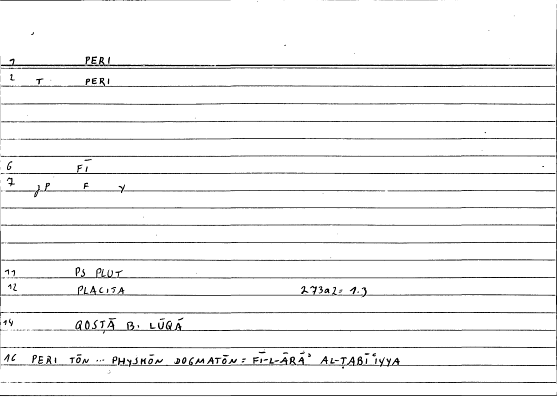 1 PERI
2 T PERI
6 FĪ
7 P F Y
11 PS PLUT
12 PLACITA 273a2= 1.3
14 QOSṬĀ B. LŪQĀ
16 PERI TŌN ... PHYSIKŌN DOGMATŌN = FĪ-L-ĀRĀʾ AL-ṬABĪʿIYYA